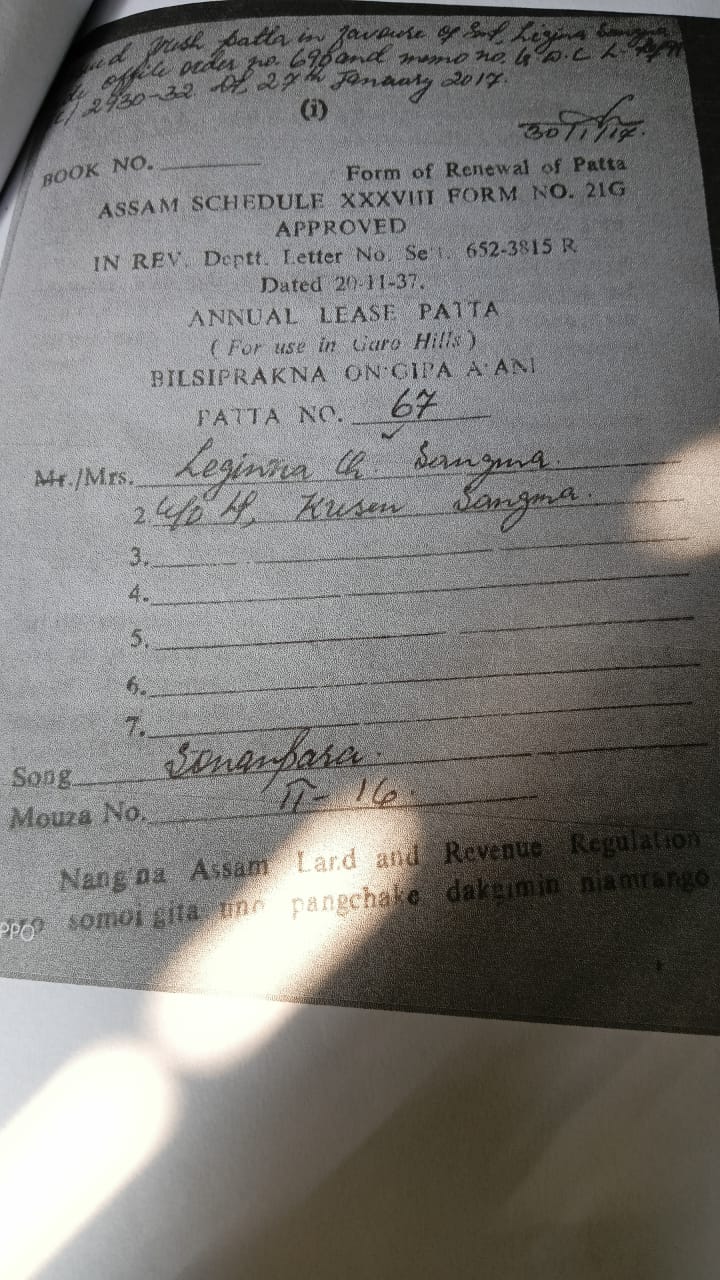 fresh patta in favour of Smt. Ligina Sangma
office order no. 696 and memo no. G.D.C.
2930-32 Dt 27th January 2017.
(i)
30/1/17.
BOOK NO.
Form of Renewal of Patta
ASSAM SCHEDULE XXXVIII FORM NO. 21G
APPROVED
IN REV. Deptt. Letter No. 652-3815 R
Dated 20-11-37.
ANNUAL LEASE PATTA
(For use in Garo Hills)
BILSIPRAKNA ON'GIPA A'ANI
PATTA NO. 67
Mr./Mrs. Leginna Ch. Sangma.
2. Krisen Sangma.
3.
4.
5.
6.
7.
Song Sonanpara.
Mouza No. II-16.
Nang'na Assam Land and Revenue Regulation
somoi gita uno pangchake dakgimin niamrango
PPO